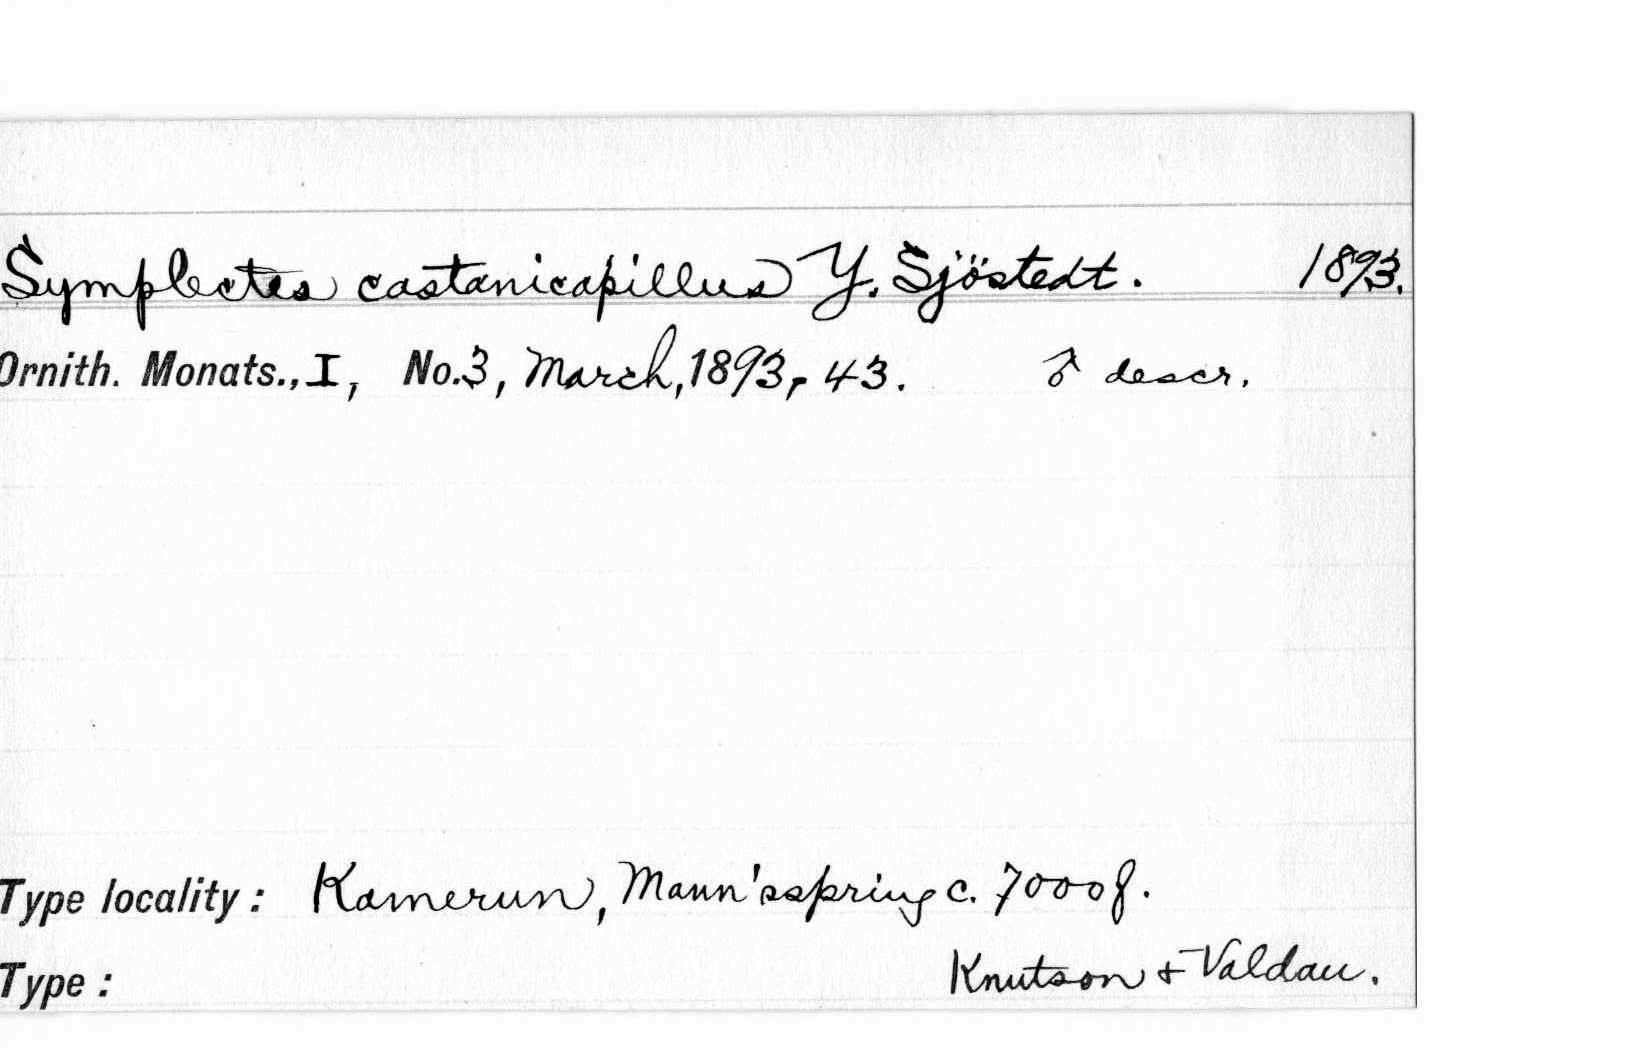 Symplectes castanicapillus Y. Sjöstedt. 1893.
Ornith. Monats., I, No. 3, March, 1893, 43. ♂ descr.
Type locality: Kamerun, Mann'sspring c. 7000f.
Type: Knutson & Valdau.